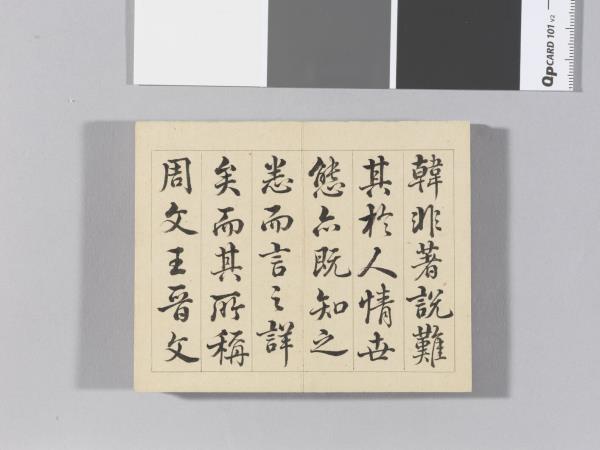 韓非著說難
其於人情世
態亦既知之
悉而言之詳
矣而其所稱
周文王晉文
QPCARD 101 v2